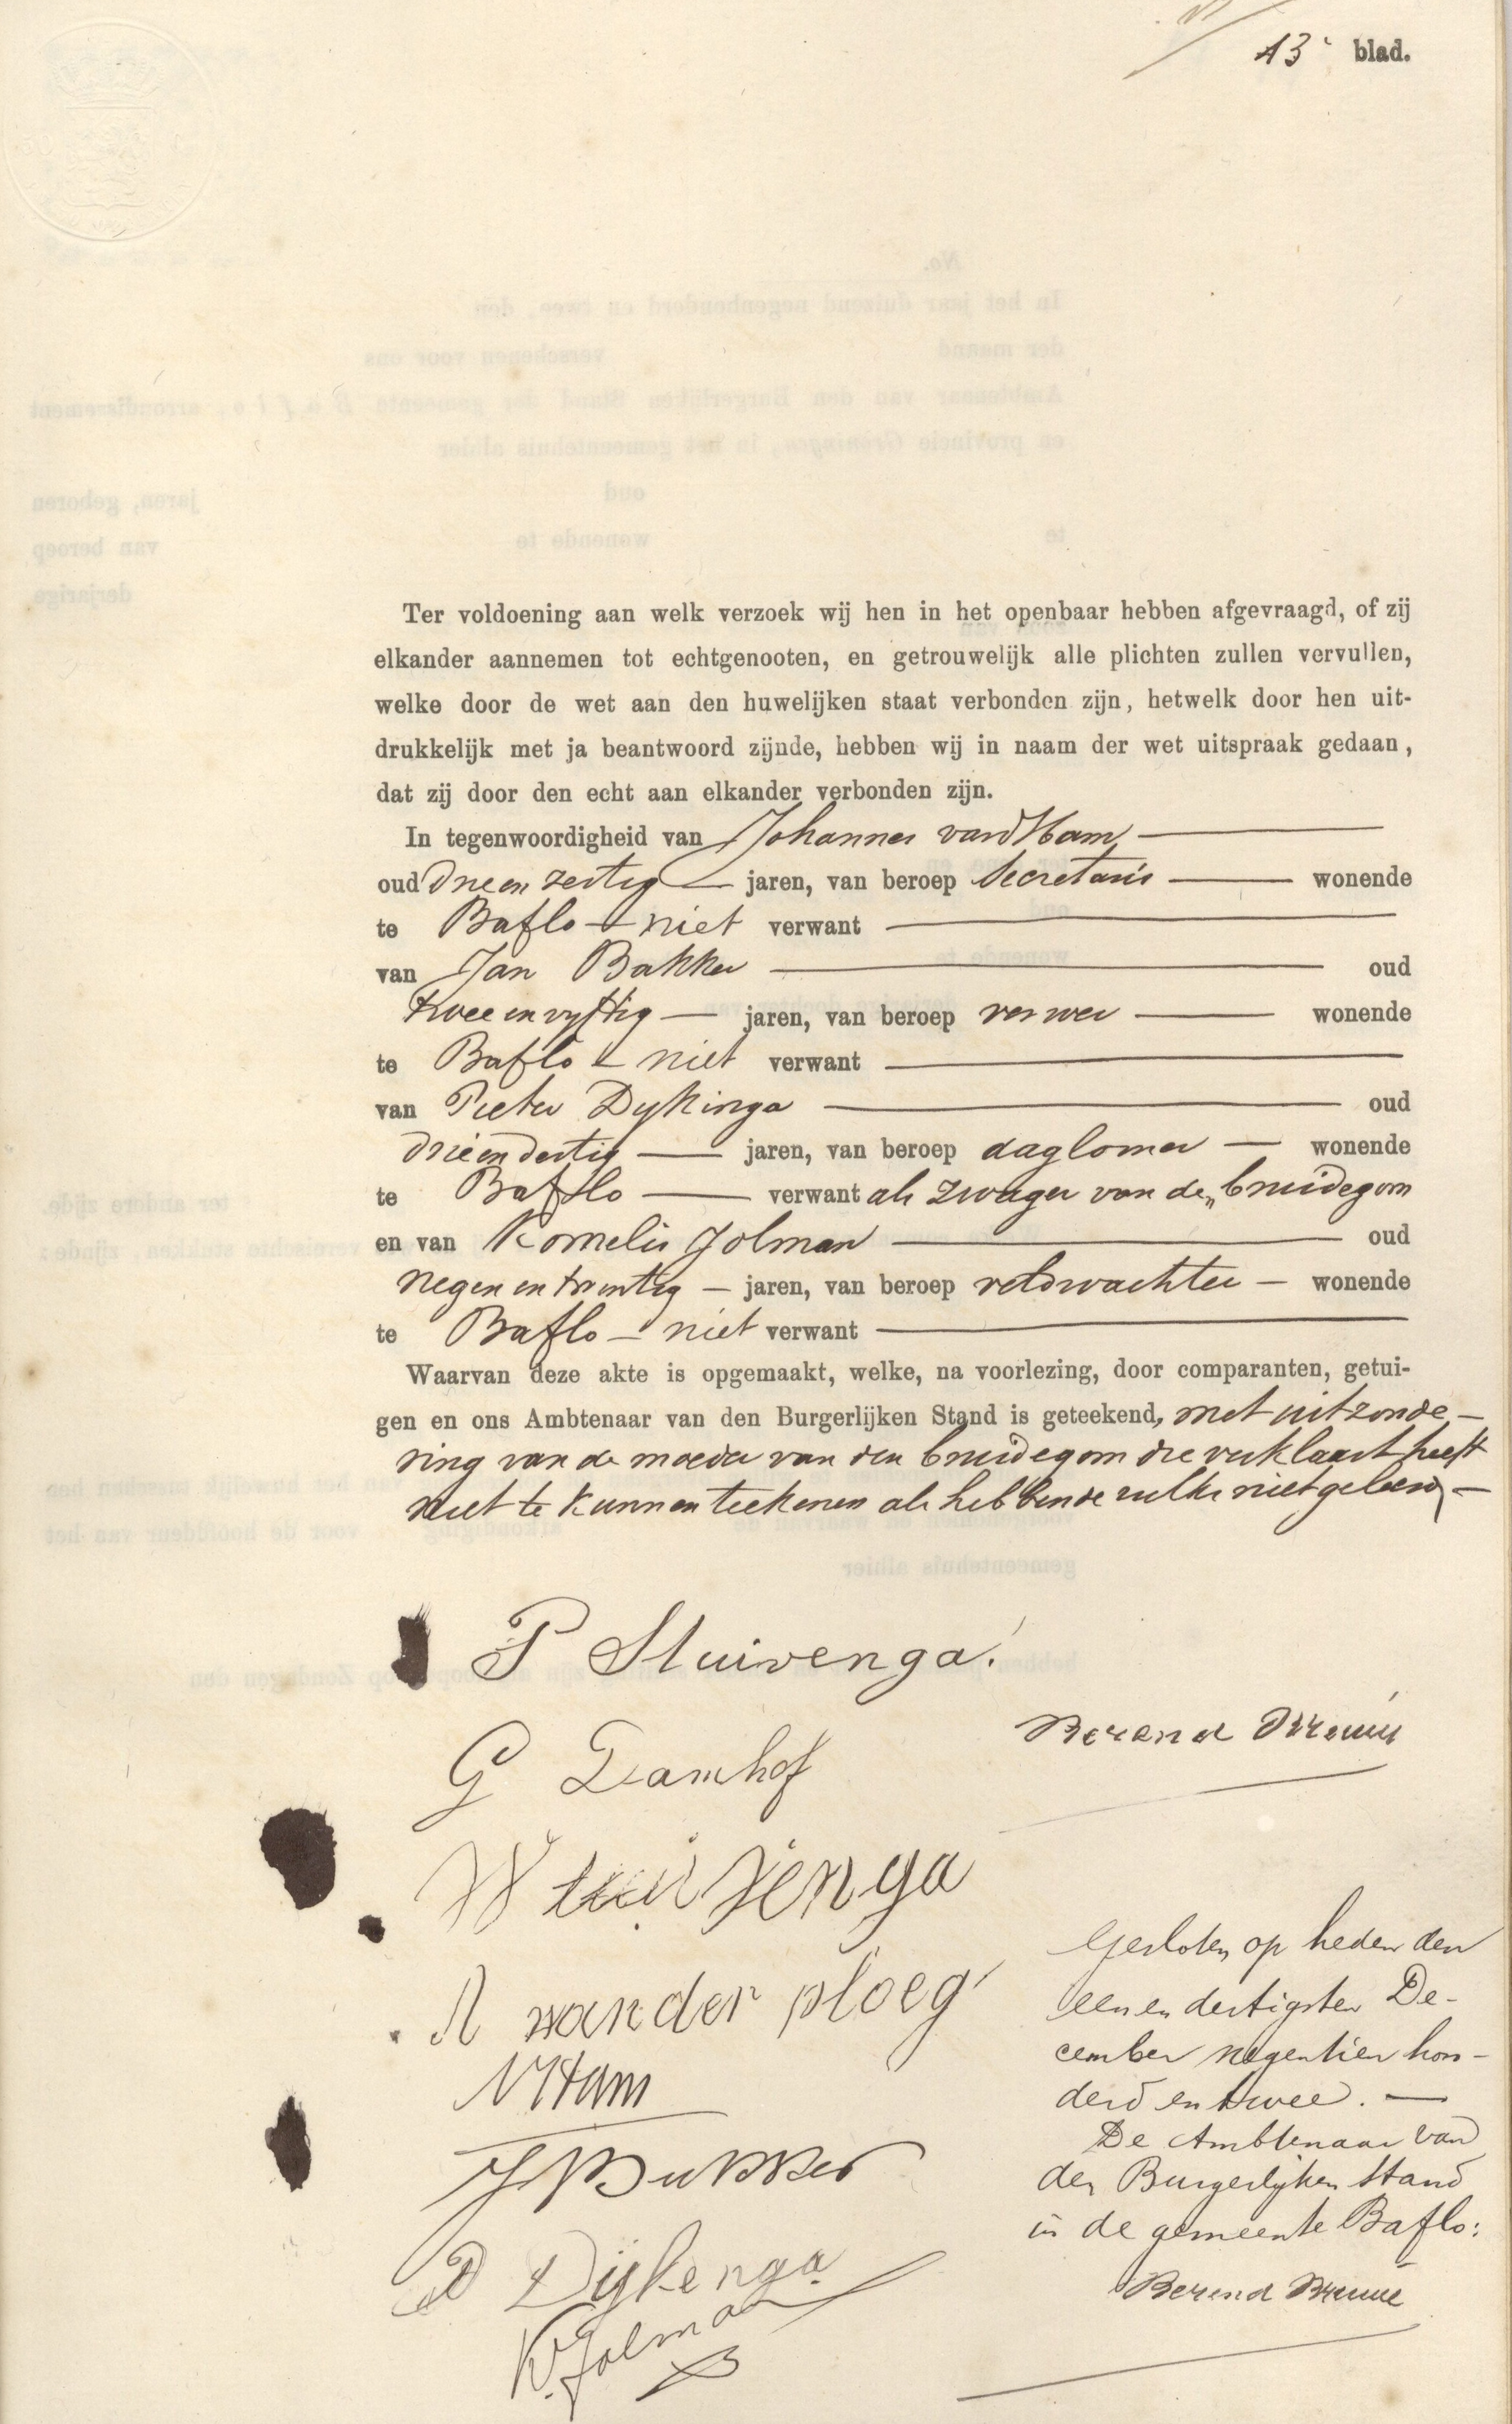 13e blad.
Ter voldoening aan welk verzoek wij hen in het openbaar hebben afgevraagd, of zij
elkander aannemen tot echtgenooten, en getrouwelijk alle plichten zullen vervullen,
welke door de wet aan den huwelijken staat verbonden zijn, hetwelk door hen uit-
drukkelijk met ja beantwoord zijnde, hebben wij in naam der wet uitspraak gedaan,
dat zij door den echt aan elkander verbonden zijn.
In tegenwoordigheid van Johannes van Ham —
oud drie en zestig — jaren, van beroep Secretaris — wonende
te Baflo — niet verwant —
van Jan Bakker — oud
twee en vyftig — jaren, van beroep verwer — wonende
te Baflo — niet verwant —
van Pieter Dykinga — oud
drie en dertig — jaren, van beroep dagloner — wonende
te Baflo — verwant als zwager van den bruidegom
en van Kornelis Jolman — oud
negen en twintig — jaren, van beroep veldwachter — wonende
te Baflo — niet verwant —
Waarvan deze akte is opgemaakt, welke, na voorlezing, door comparanten, getui-
gen en ons Ambtenaar van den Burgerlijken Stand is geteekend, met uitzonde-
ring van de moeder van den bruidegom die verklaard heeft
niet te kunnen teekenen als hebbende zulks niet geleerd, —
P Stuivenga.
Berend
G Damhof
vander ploeg
Ham
J Bakker
P Dijkenga
K. Jolman
Gesloten op heden den
een en dertigsten De-
cember negentien hon-
derd en twee. —
De Ambtenaar van
den Burgerlijken Stand
in de gemeente Baflo:
Berend